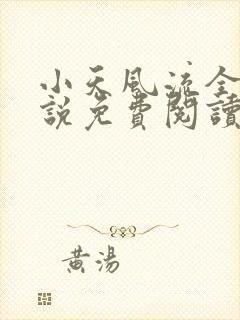 小天風流全
說免費閱讀
黃湯